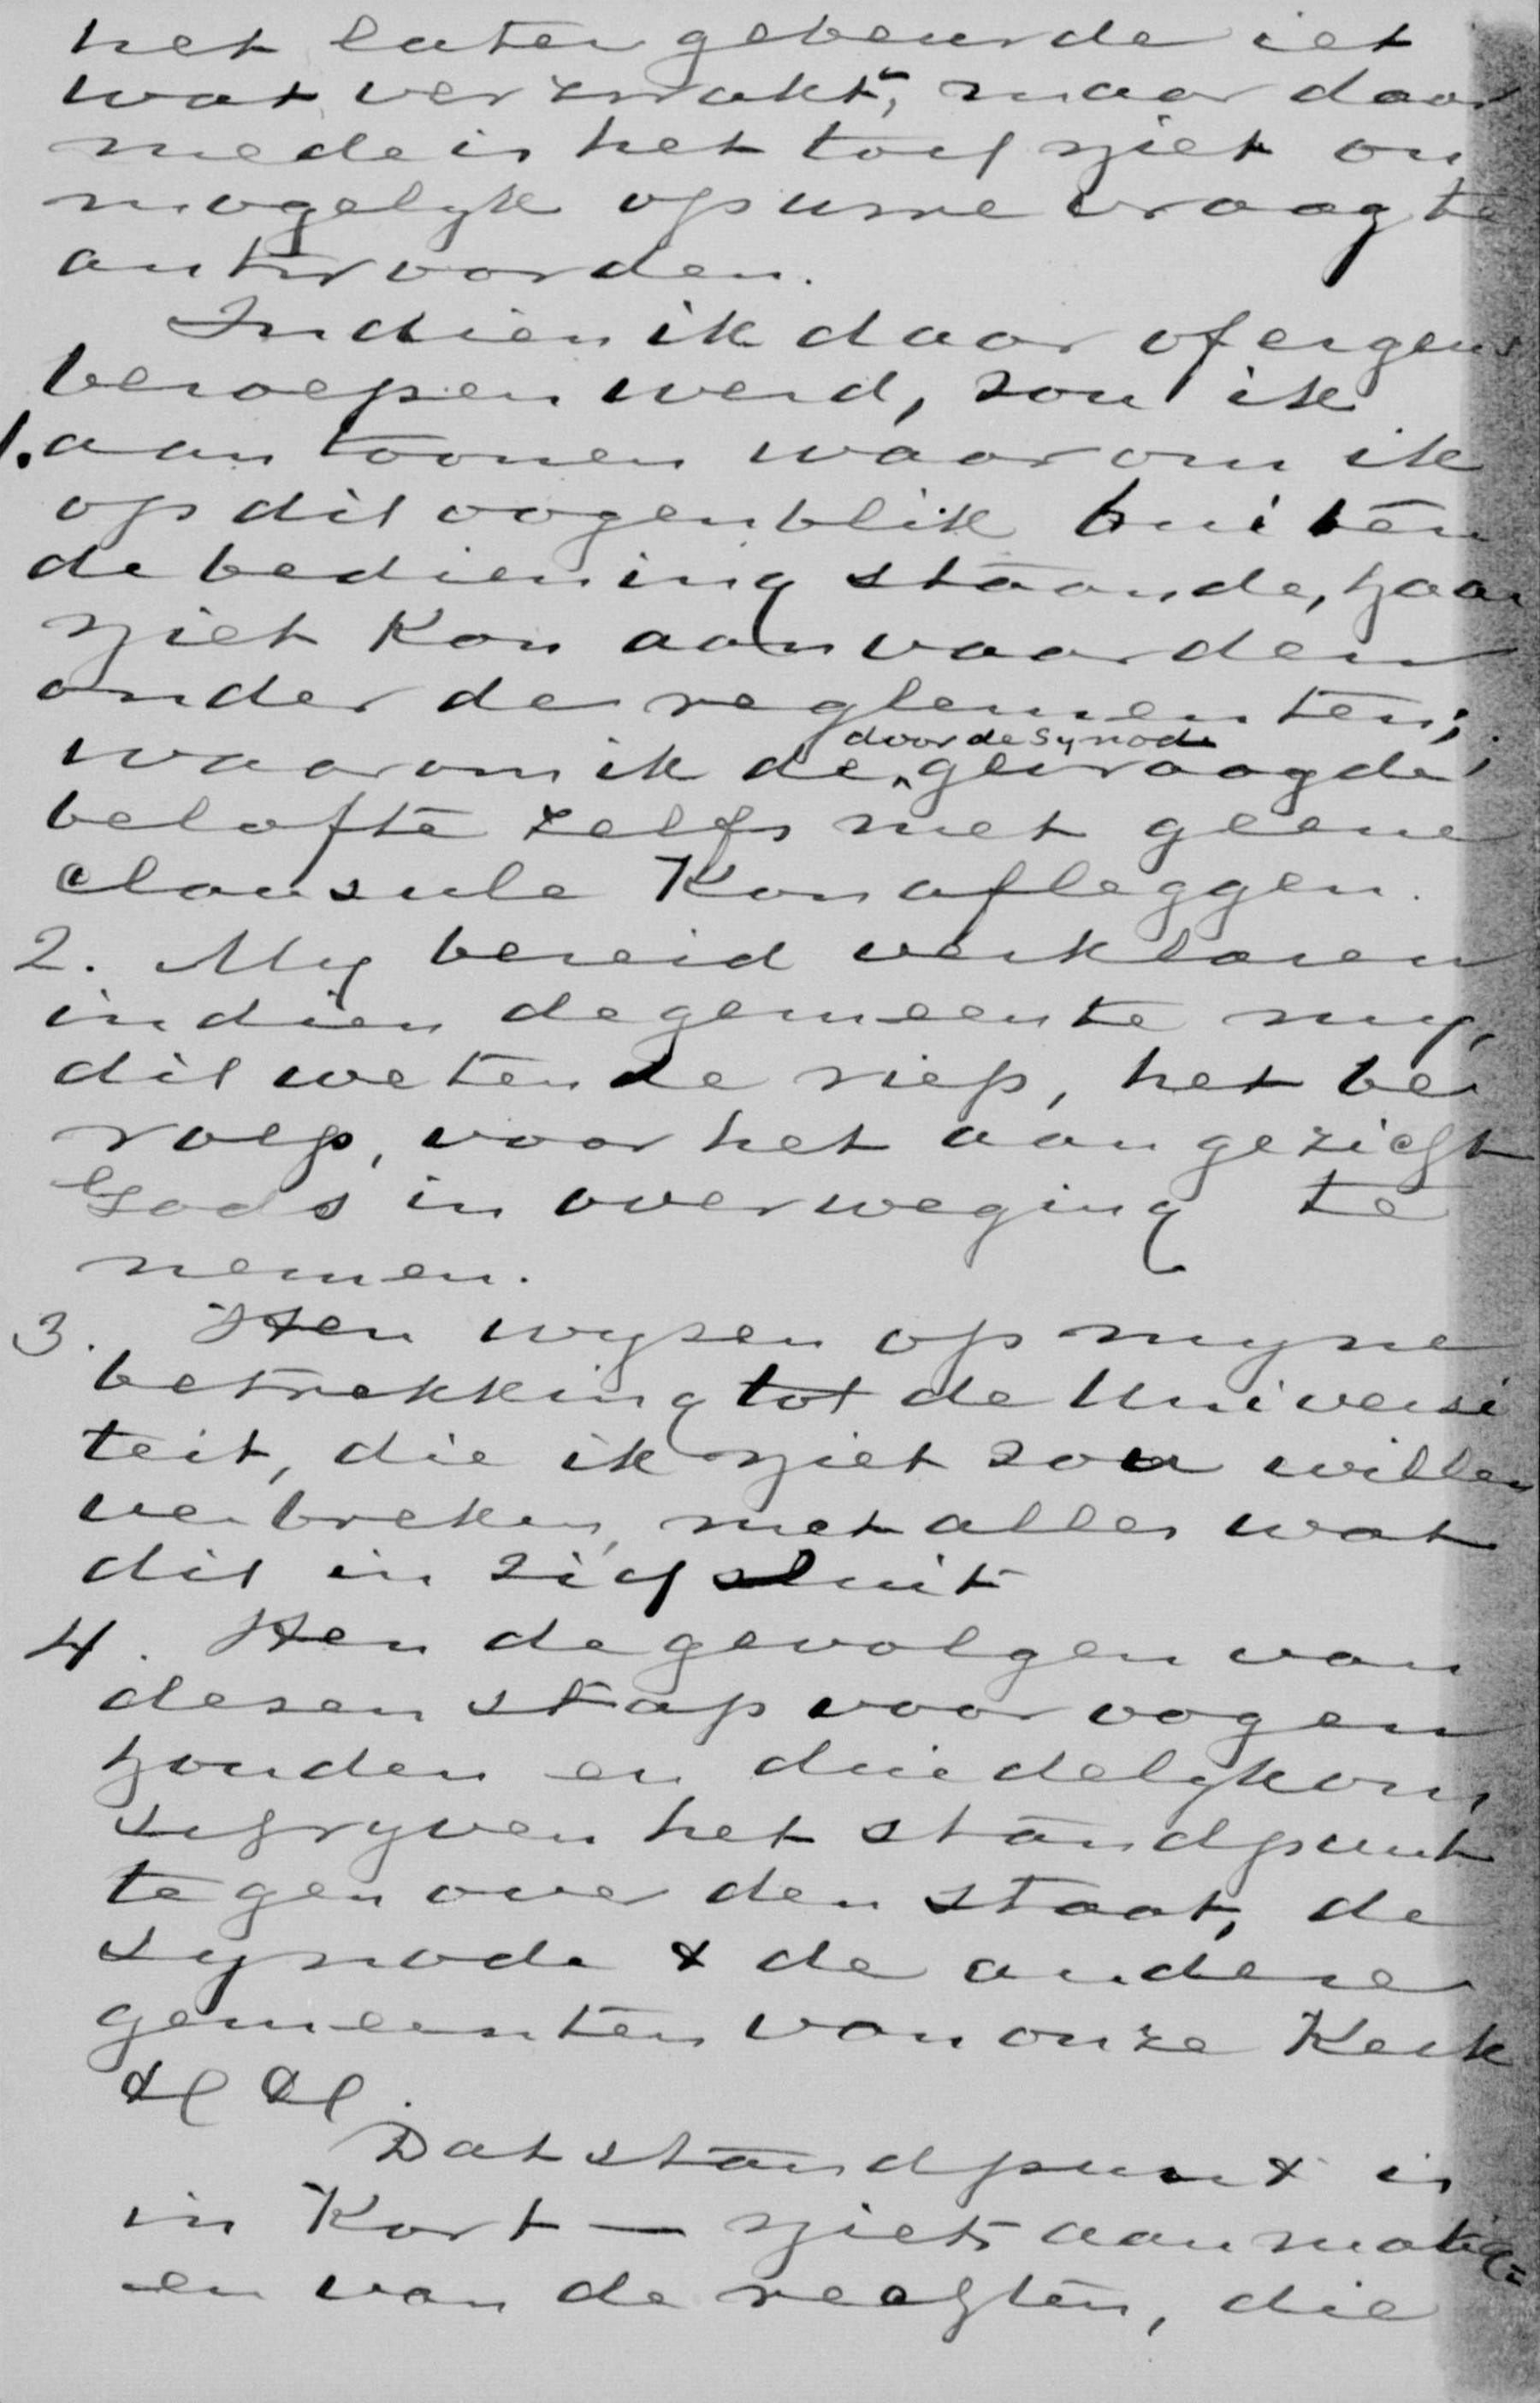 het later gebeurde iet
wat verzwakt, maar daar
mede is het toch niet on
mogelyk op uwe vraag te
antwoorden.
Indien ik daar of ergens
beroepen werd, zou ik
1. aan toonen waarom ik
op dit oogenblik buiten
de bediening staande, haar
niet kon aanvaarden
onder de reglementen;
door de Synode
waarom ik de gevraagde
belofte zelfs met geene
clausule kon afleggen.
2. My bereid verklaren
indien de gemeente my,
dit wetende riep, het be
roep, voor het aangezicht
Gods in overweging te
nemen.
3. Hen wyzen op myne
betrekking tot de Universi
teit, die ik niet zou willen
verbreken, met alles wat
dit in zich sluit
4. Hen de gevolgen van
dezen stap voor oogen
houden en duidelyk om
schryven het standpunt
tegenover den staat, de
synode & de andere
gemeenten van onze Kerk
&c &c.
Dat standpunt is
in Kort — niet aanmatig=
en van de rechten, die